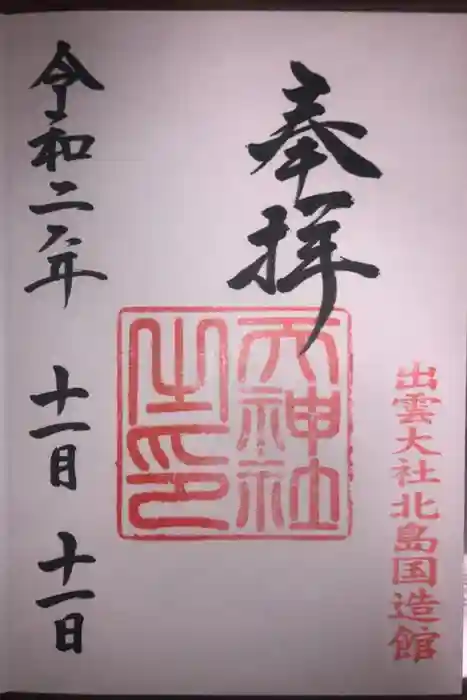 出雲大社北島国造館
奉拝
天神社
之印
令和二年 十一月 十一日